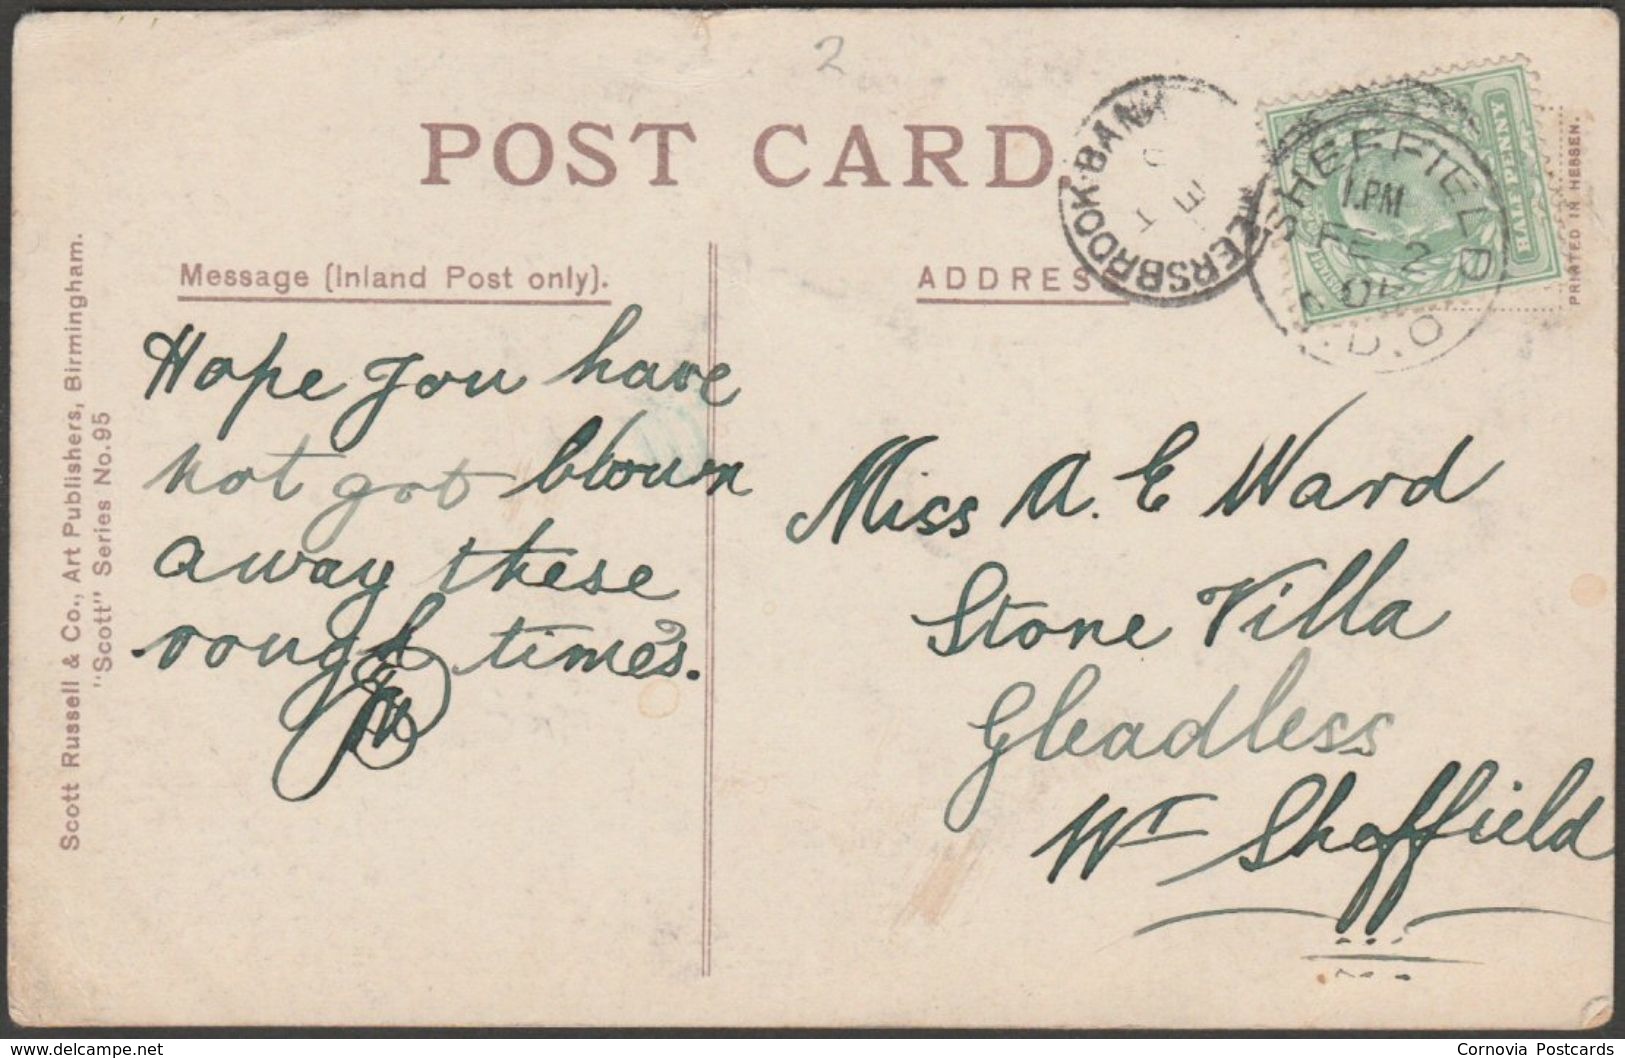 2
POST CARD
Message (Inland Post only).
ADDRES
PRINTED IN HESSEN.
Scott Russell & Co., Art Publishers, Birmingham.
"Scott" Series No. 95
HALF PENNY
SHEFFIELD
1.PM
FE 2
04
D.O
MEERSBROOK·BANK
Hope you have
not got blown
away these
rough times.
Miss A. E Ward
Stone Villa
Gleadless
Nr Sheffield
delcampe.net
Cornovia Postcards